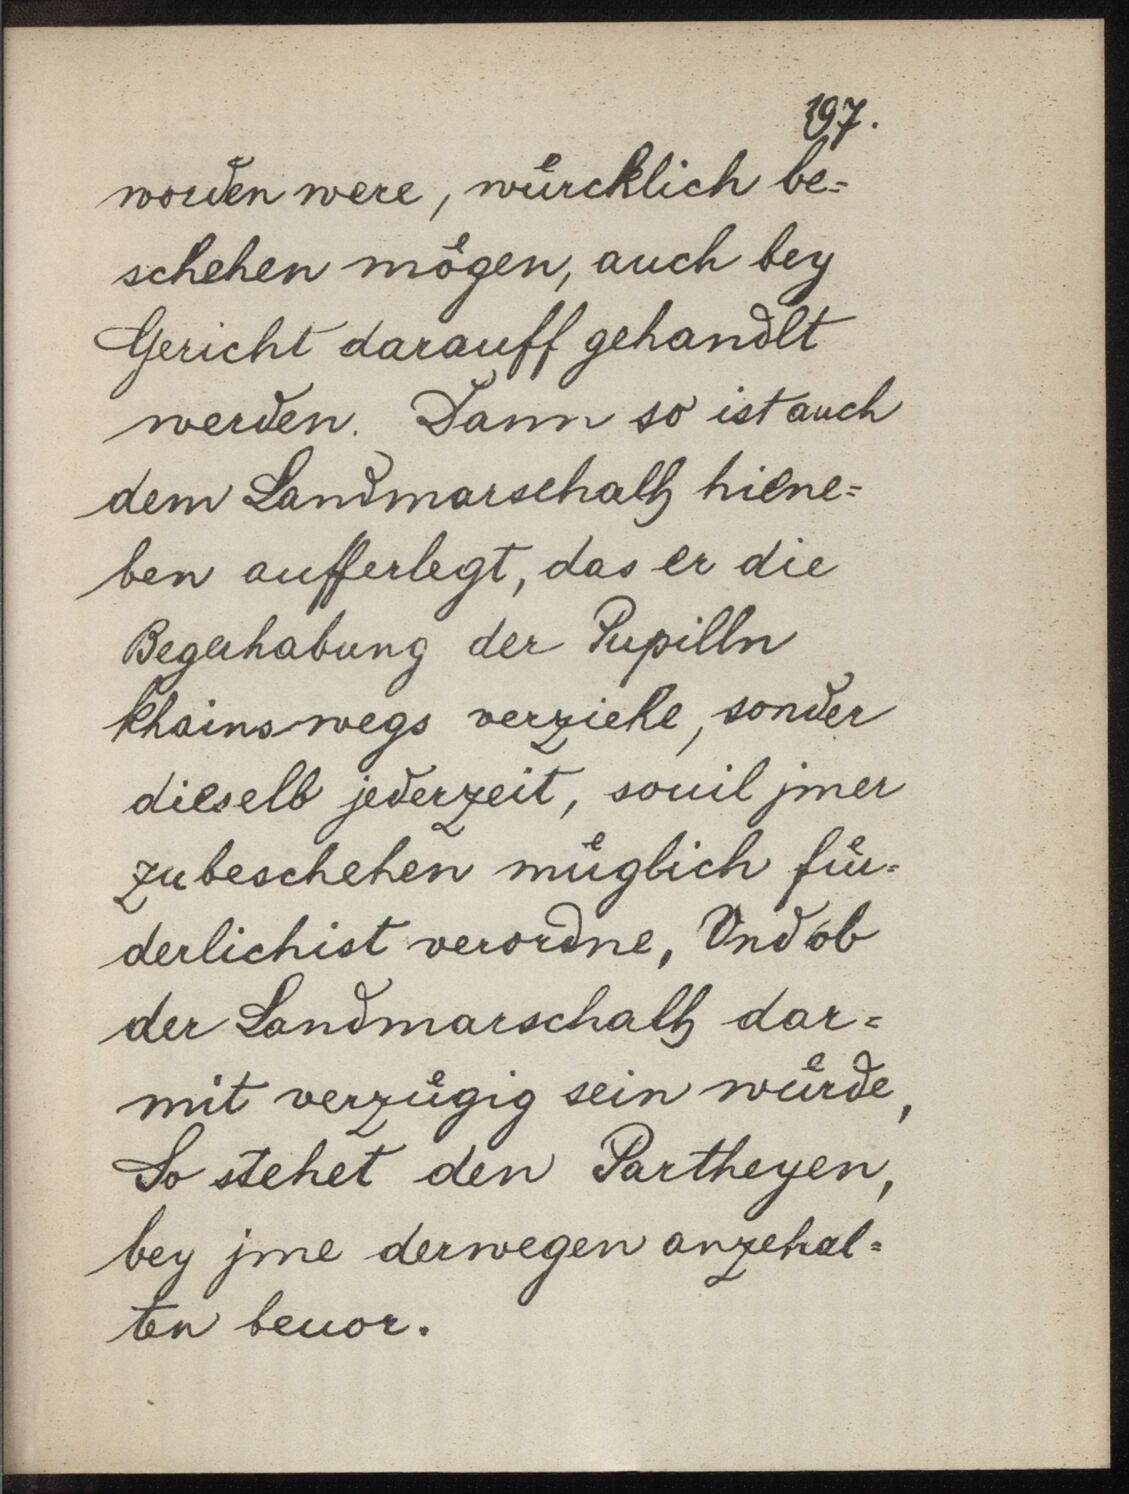 197.
worden were, wu̎rcklich be=
schehen mögen, auch bey
Gericht darauff gehandlt
werden. Dann so ist auch
dem Landmarschalh hiene=
ben aufferlegt, das er die
Begerhabung der Pupilln
khains wegs verziehe, sonder
dieselb jederzeit, souil jmer
zubeschehen müglich für=
derlichist verordne, Und ob
der Landmarschalh dar=
mit verzügig sein würde,
So stehet den Partheyen,
bey jme derwegen anzehal=
ten beuor.